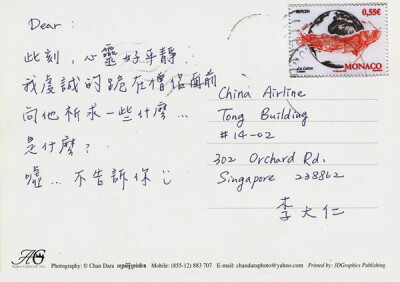 Dear:
此刻,心靈好平靜
我虔誠的跪在僧侶面前
向他祈求一些什麼...
是什麼?
噓... 不告訴你
China Airline
Tong Building
#14-02
302 Orchard Rd.
Singapore 238862
李大仁
EUROPA
0,55€
MONACO
Photography: © Chan Dara
Mobile: (855-12) 883 707
E-mail: chandaraphoto@yahoo.com
Printed by: 3DGraphics Publishing